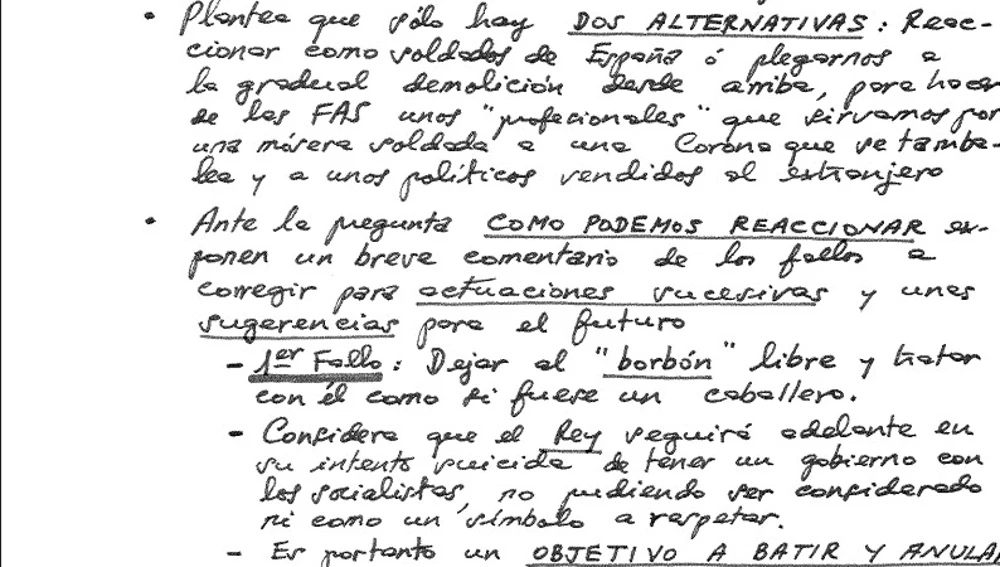 • Plantea que sólo hay DOS ALTERNATIVAS: Reac-
cionar como soldados de España ó plegarnos a
la gradual demolición desde arriba, para hacer
de las FAS unos "profecionales" que sirvamos por
una mísera soldada a una Corona que se tamba-
lea y a unos políticos vendidos al extranjero
• Ante la pregunta COMO PODEMOS REACCIONAR ex-
ponen un breve comentario de los fallos a
corregir para actuaciones sucesivas y unas
sugerencias para el futuro
- 1er Fallo: Dejar al "borbón" libre y tratar
con él como si fuese un caballero.
- Considera que el Rey seguirá adelante en
su intento suicida de tener un gobierno con
los socialistas, no pudiendo ser considerado
ni como un símbolo a respetar.
- Es portanto un OBJETIVO A BATIR Y ANULAR